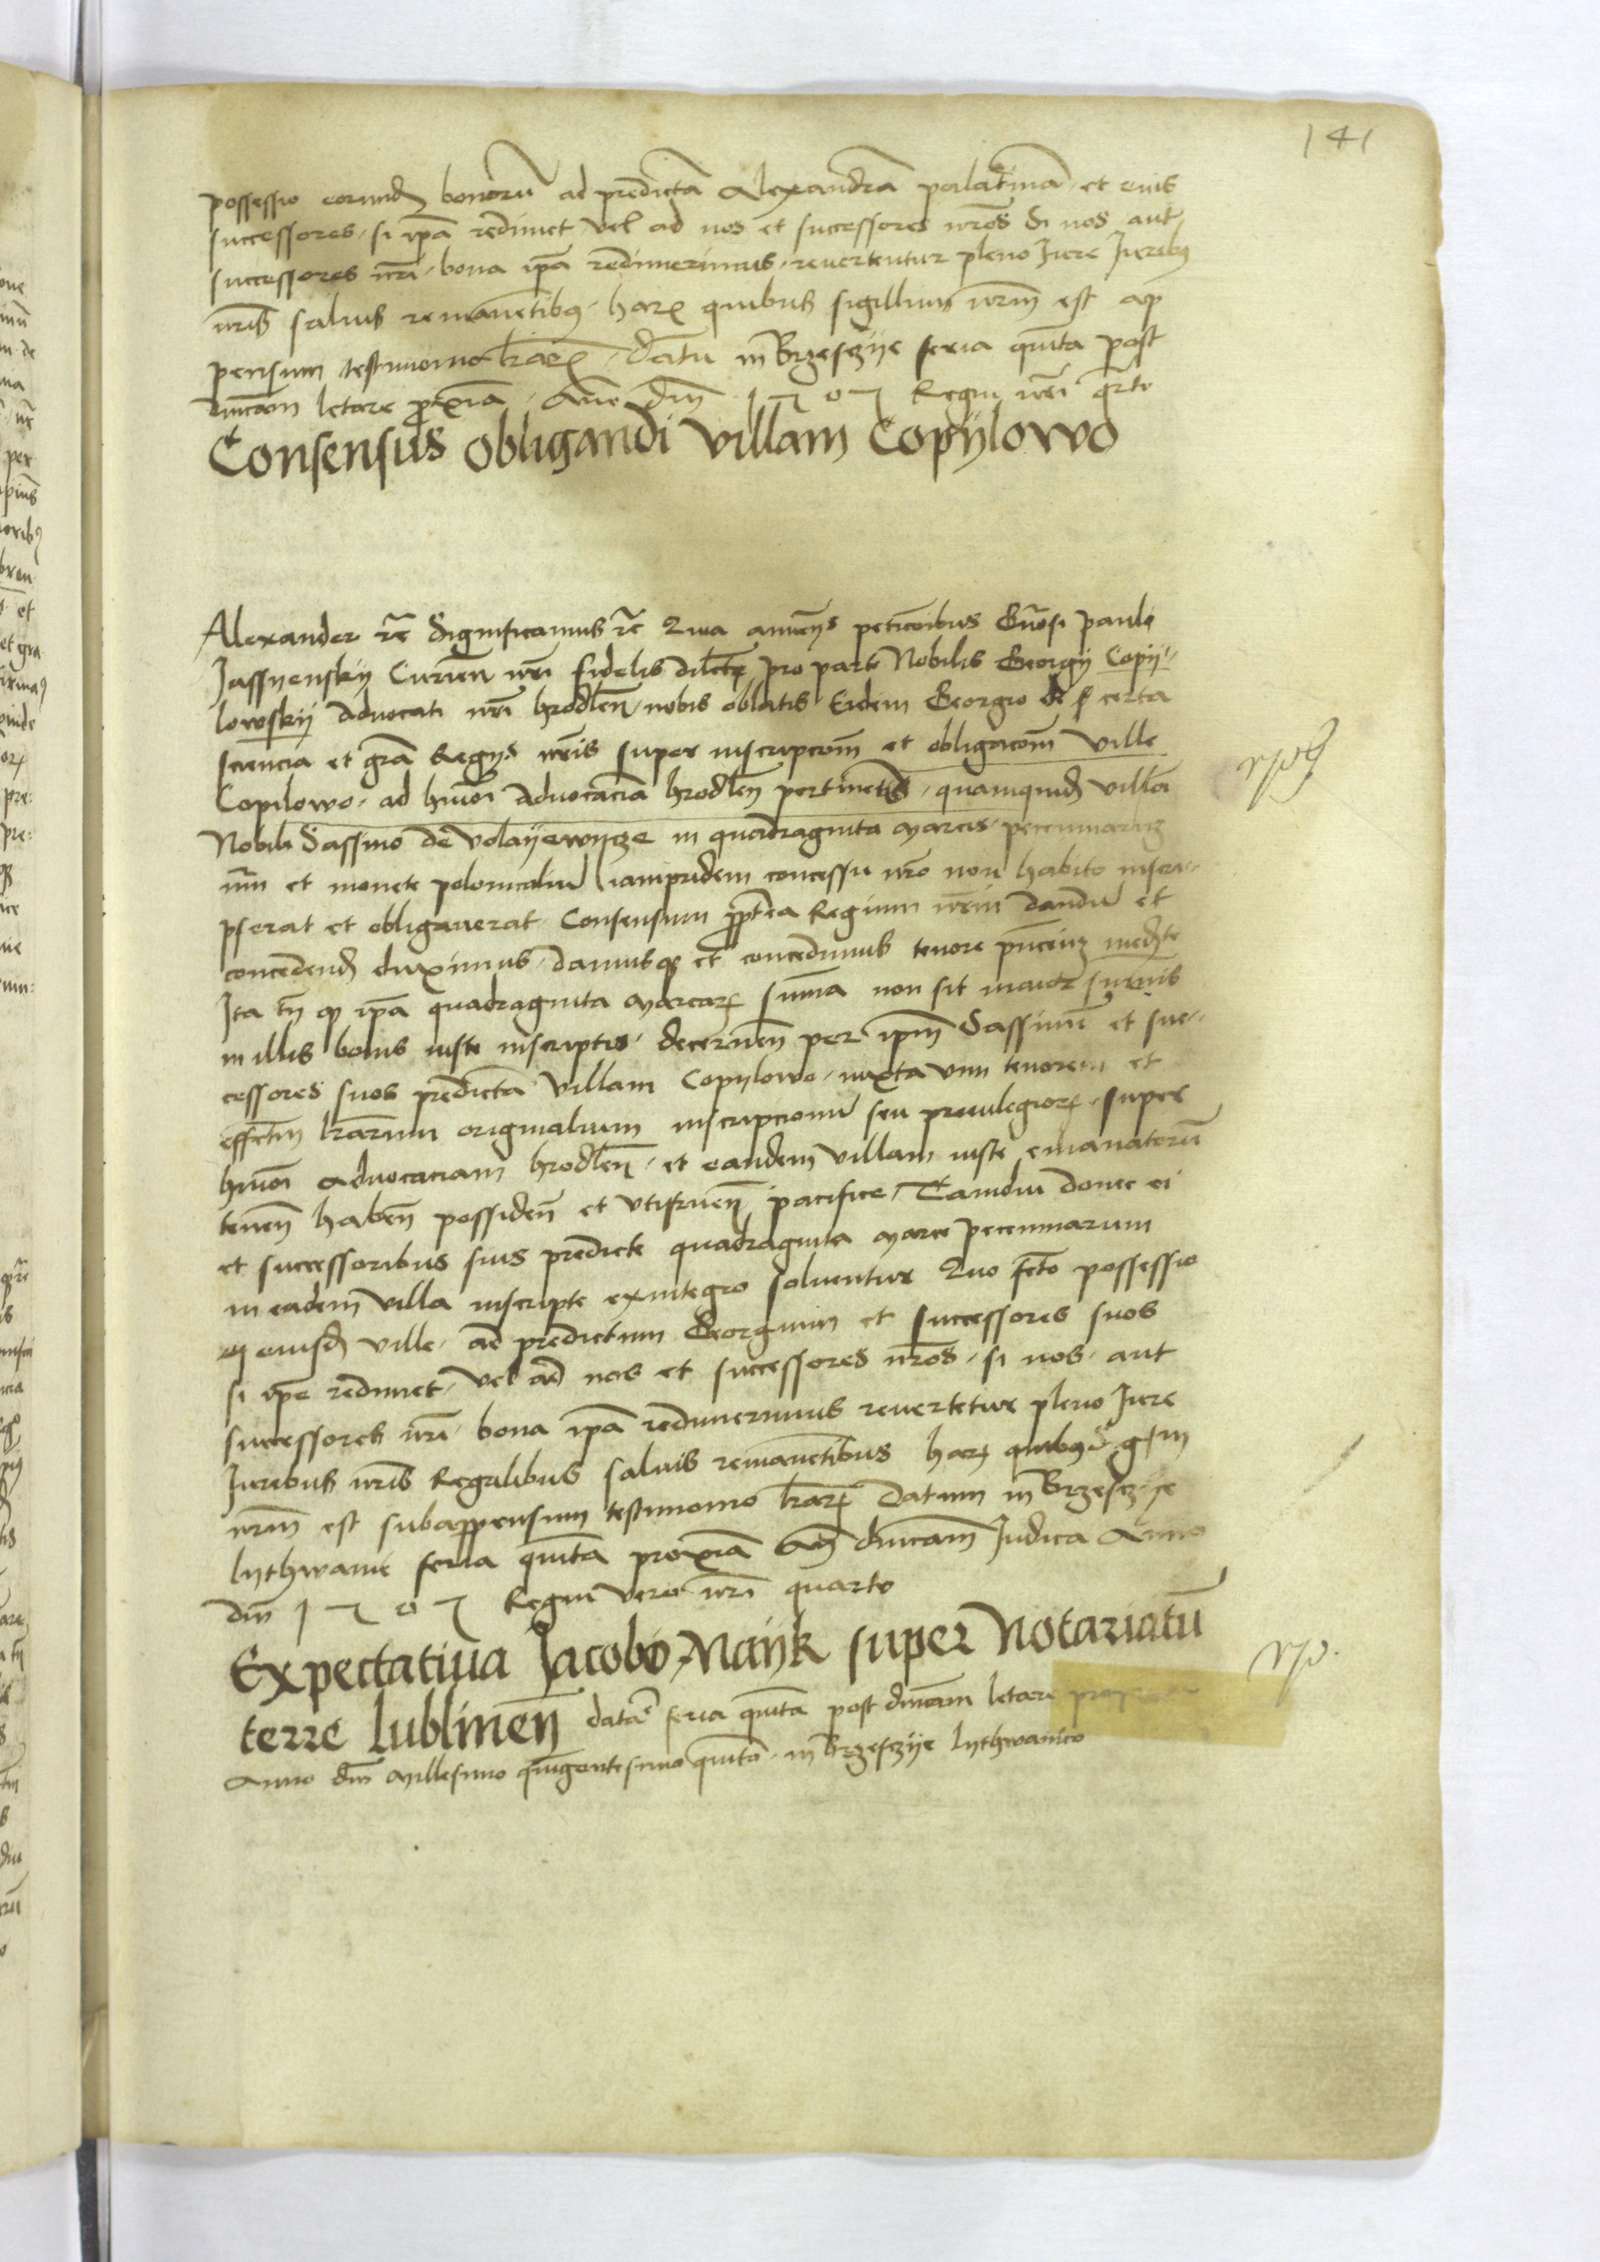 141
possessio eorund(em) bonorū ad predictā Alexandrā palatinā et eius
successores, si ip̄a redimet vel ad nos et successores nr̄os Si nos aut
successores nr̄i bona ip̄a redimerimus reuertentur pleno Iure Iurib9
nr̄is saluis remanētib9 harꝝ quibus sigillum nr̄m est ap
pensum testimonio lr̄arꝝ Datū in Brzesczije feria quīta post
dn̄icam letare proxīa Anno dn̄i 1505 Regni nr̄i q̄rto
Consensus obligandi villam Copijlowo
Alexander rē Significamus rē Quia peticōibus Gn̄osi pauli
Jassyensky Curien̄ nr̄i fidelis dilc̄te pro parte Nobilis Georgij Copij-
lowskij Aduocati nr̄i hrodlen̄ nobis oblatis Eidem Georgio de certa
sciencia et gr̄a Regijs nr̄is super inscripcōm̄ et obligacōm̄ ville
Copilowo ad hmōi Aduocaciā hrodlen̄ pertinetis quamquid(em) villā
Nobili Sassino de Volayewycze in quadraginta Marcis pecuniarū
nūi et monete polonicaliū iampridem concessu nr̄o non habito inscri-
pserat et obligauerat Consensum propterea Regium nr̄m dandū et
concedend(um) duximus damusq(ue) et concedimus tenore pn̄ciū med(ian)te
Ita tn̄ q(uod) ip̄a quadraginta Marcarꝝ sūma non sit maior sūmis
in illis bonis iuste inscriptis decernen̄ per ip̄m Sassinū et suc-
cessores suos predictā villam Copylowo iuxta vim tenorem et
effctm̄ lr̄arum originalium inscripcionū seu priuilegiorꝝ super
hmōi Aduocaciam hrodlen̄ et eandem villam iuste emanatorū
tenen̄ haben̄ possiden̄ et vtifruen̄ pacifice Tamdiu donec ei
et successoribus suis predicte quadraginta Marce pecuniarum
in eadem villa inscripte exintegro soluentur Quo fc̄to possessio
eiusd(em) ville ad predictum Georgium et successores suos
si ip̄e redimet vel ad nos et successores nr̄os si nos aut
successores nr̄i bona ip̄a redimerimus reuertetur pleno Iure
Iuribus nr̄is Regalibus saluis remanētibus harꝝ quib9
nr̄m est subappensum testimonio lr̄arꝝ Datum in Brzesczije
lythwanie feria quīta proxīa An̄ dn̄icam Judica Anno
dn̄i 1505 Regni vero nr̄i quarto
Expectatiua Jacobo Mayk super Notariatū
terre lublinen̄ data feria quīta post dn̄icam letare
Anno dn̄i Millesimo quingentesimo quīto in Brzesczije lythwanico